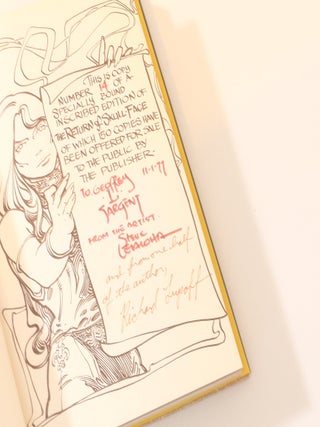 THIS IS COPY
NUMBER 14 OF A
SPECIALLY BOUND
INSCRIBED EDITION OF
THE RETURN OF SKULL-FACE
OF WHICH 50 COPIES HAVE
BEEN OFFERED FOR SALE
TO THE PUBLIC BY
THE PUBLISHER.
TO GEOFFREY 11-1-77
SARGENT
FROM THE ARTIST.
STEVE
LEIALOHA
and from one half
of the author,
Richard Lupoff